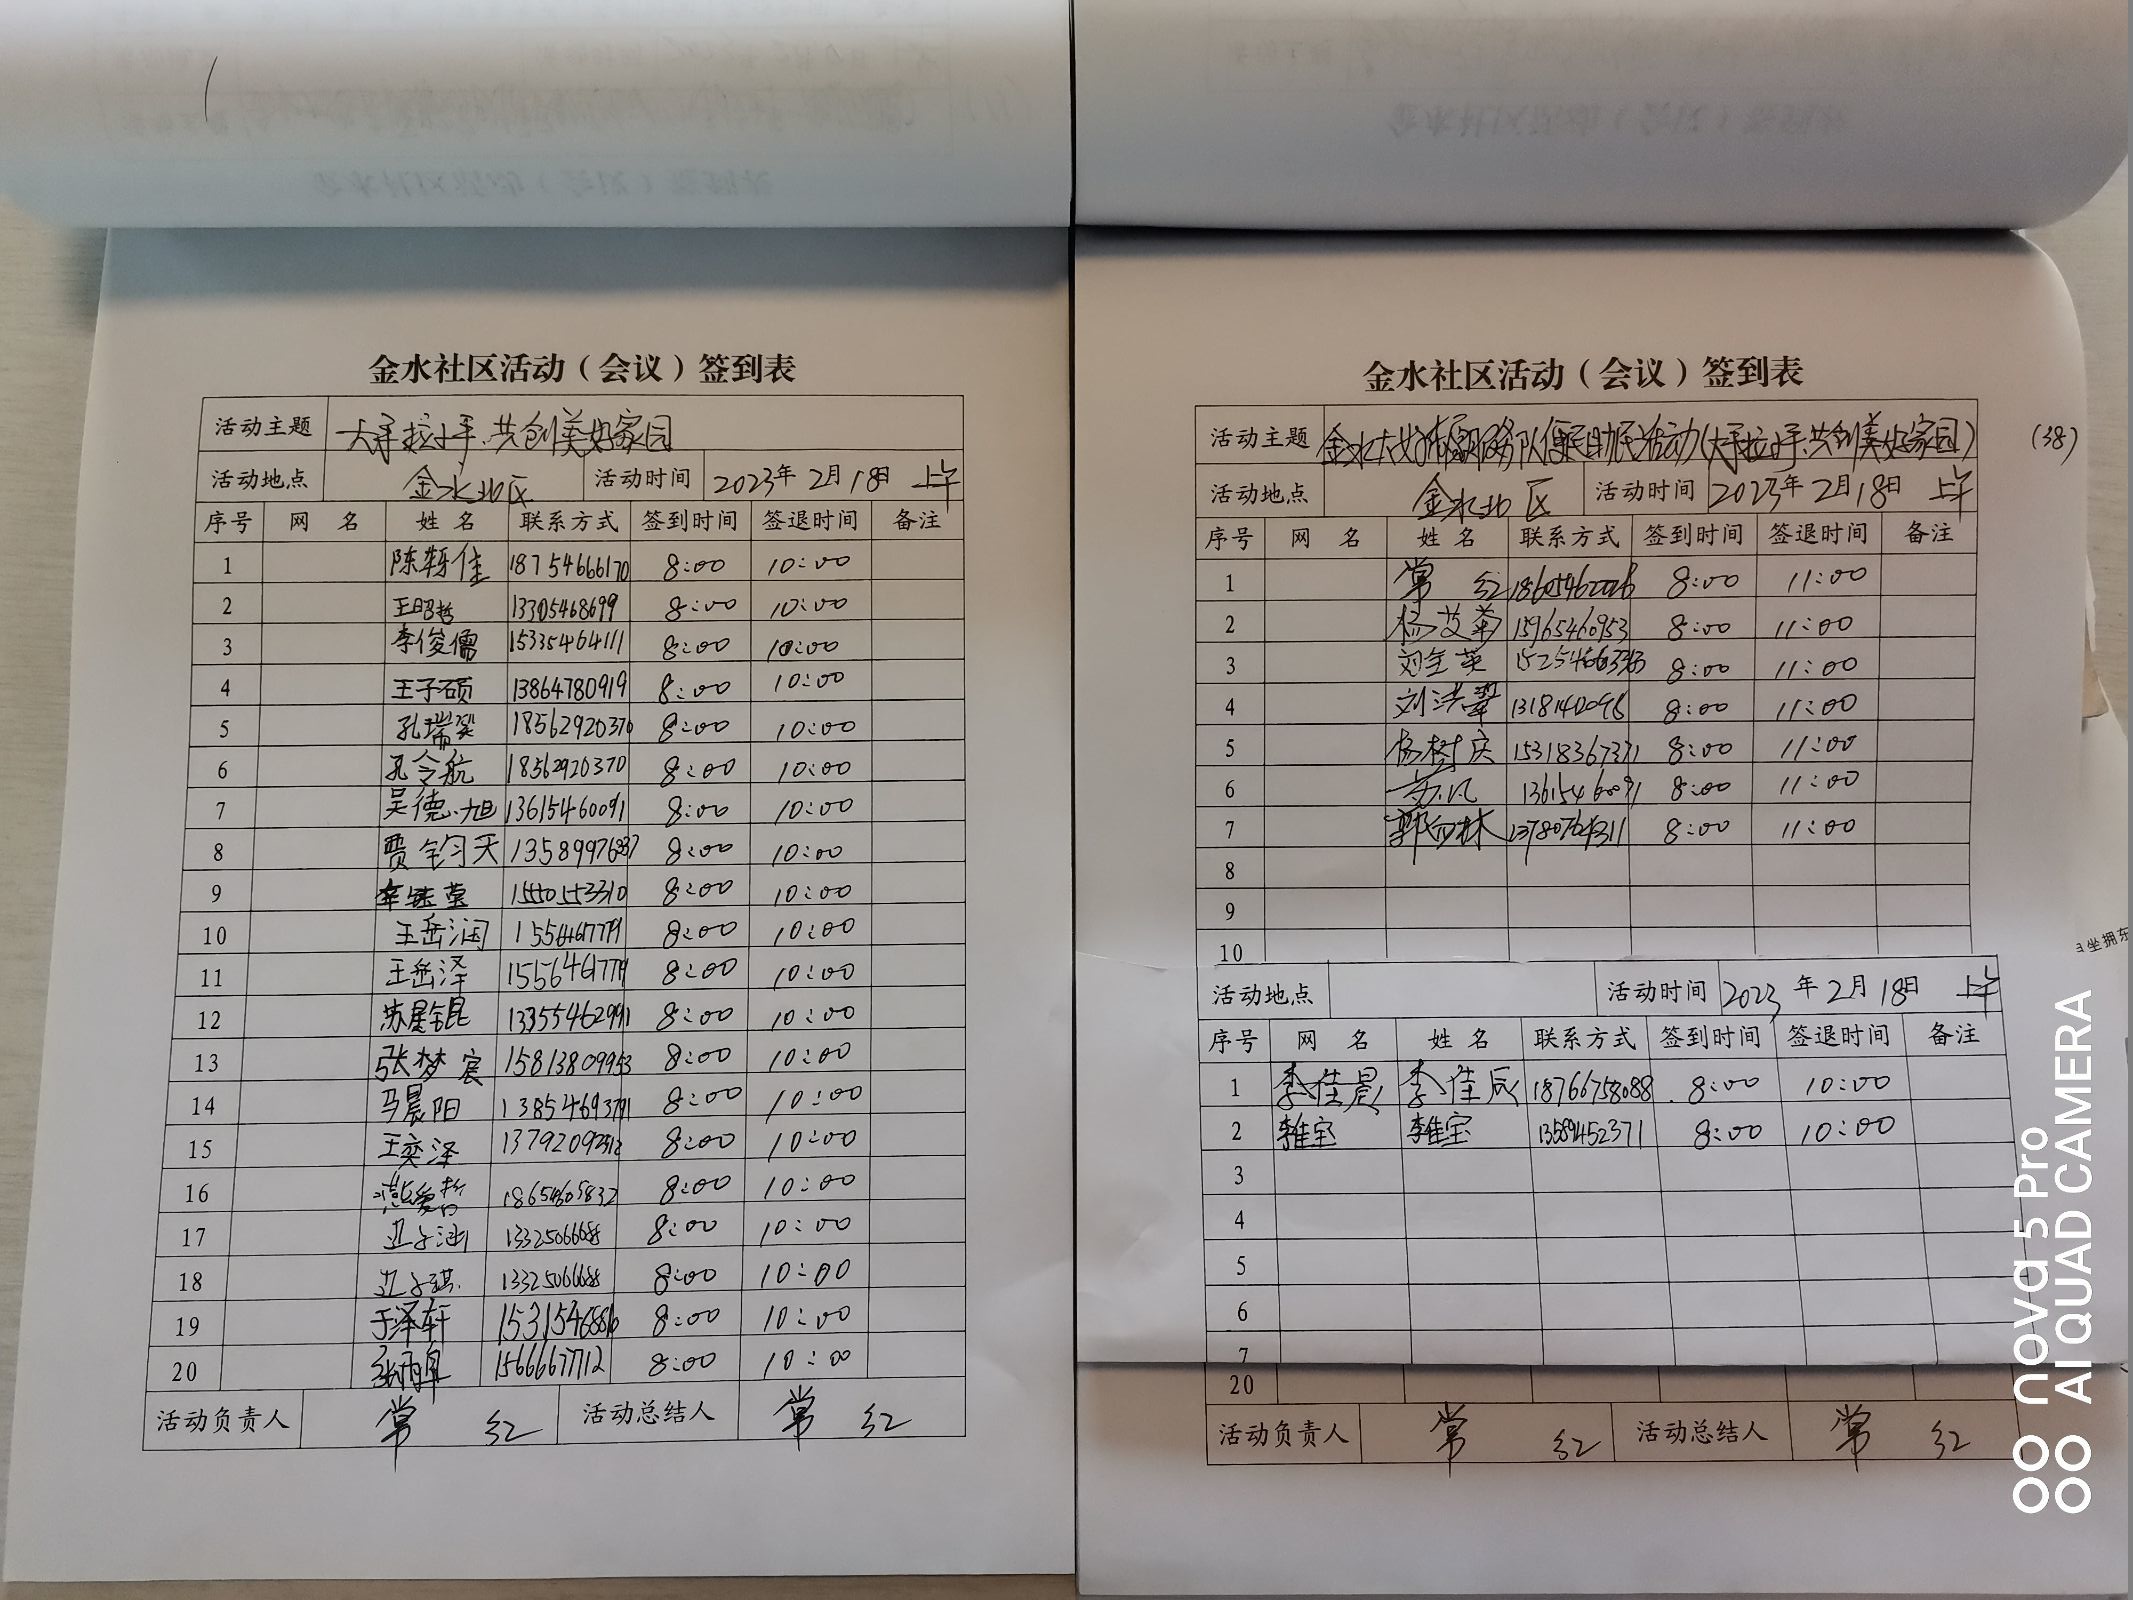 金水社区活动（会议）签到表
活动主题 大手拉小手.共创美好家园
活动地点 金水社区 活动时间 2023年2月18日 上午
序号 网 名 姓 名 联系方式 签到时间 签退时间 备注
1 陈轹佳 18754666170 8:00 10:00
2 王昭哲 13305468699 8:00 10:00
3 李俊儒 15335464111 8:00 10:00
4 王子硕 13864780919 8:00 10:00
5 孔瑞 18562920370 8:00 10:00
6 孔令航 18562920370 8:00 10:00
7 吴德旭 13615460091 8:00 10:00
8 贾钧天 8:00 10:00
9 8:00 10:00
10 王岳润 8:00 10:00
11 王岳泽 8:00 10:00
12 13355462991 8:00 10:00
13 张梦宸 15813809953 8:00 10:00
14 马晨阳 13854693791 8:00 10:00
15 王奕泽 8:00 10:00
16 18654605832 8:00 10:00
17 8:00 10:00
18 8:00 10:00
19 于泽轩 8:00 10:00
20 15666677712 8:00 10:00
活动负责人 常 红 活动总结人 常 红
金水社区活动（会议）签到表
(38)
活动主题 便民助民活动(大手拉小手.共创美好家园)
活动地点 金水社区 活动时间 2023年2月18日 上午
序号 网 名 姓 名 联系方式 签到时间 签退时间 备注
1 常 红 8:00 11:00
2 杨艾华 15965460953 8:00 11:00
3 刘金英 8:00 11:00
4 刘洪翠 8:00 11:00
5 杨树庆 15318367371 8:00 11:00
6 苏凡 13615460091 8:00 11:00
7 13780764311 8:00 11:00
8
9
10
活动地点 活动时间 2023年2月18日 上午
序号 网 名 姓 名 联系方式 签到时间 签退时间 备注
1 李佳晨 李佳辰 18766758088 8:00 10:00
2 李佳宝 李佳宝 13589452371 8:00 10:00
3
4
5
6
7
20
活动负责人 常 红 活动总结人 常 红
坐拥东
nova 5 Pro
AI QUAD CAMERA